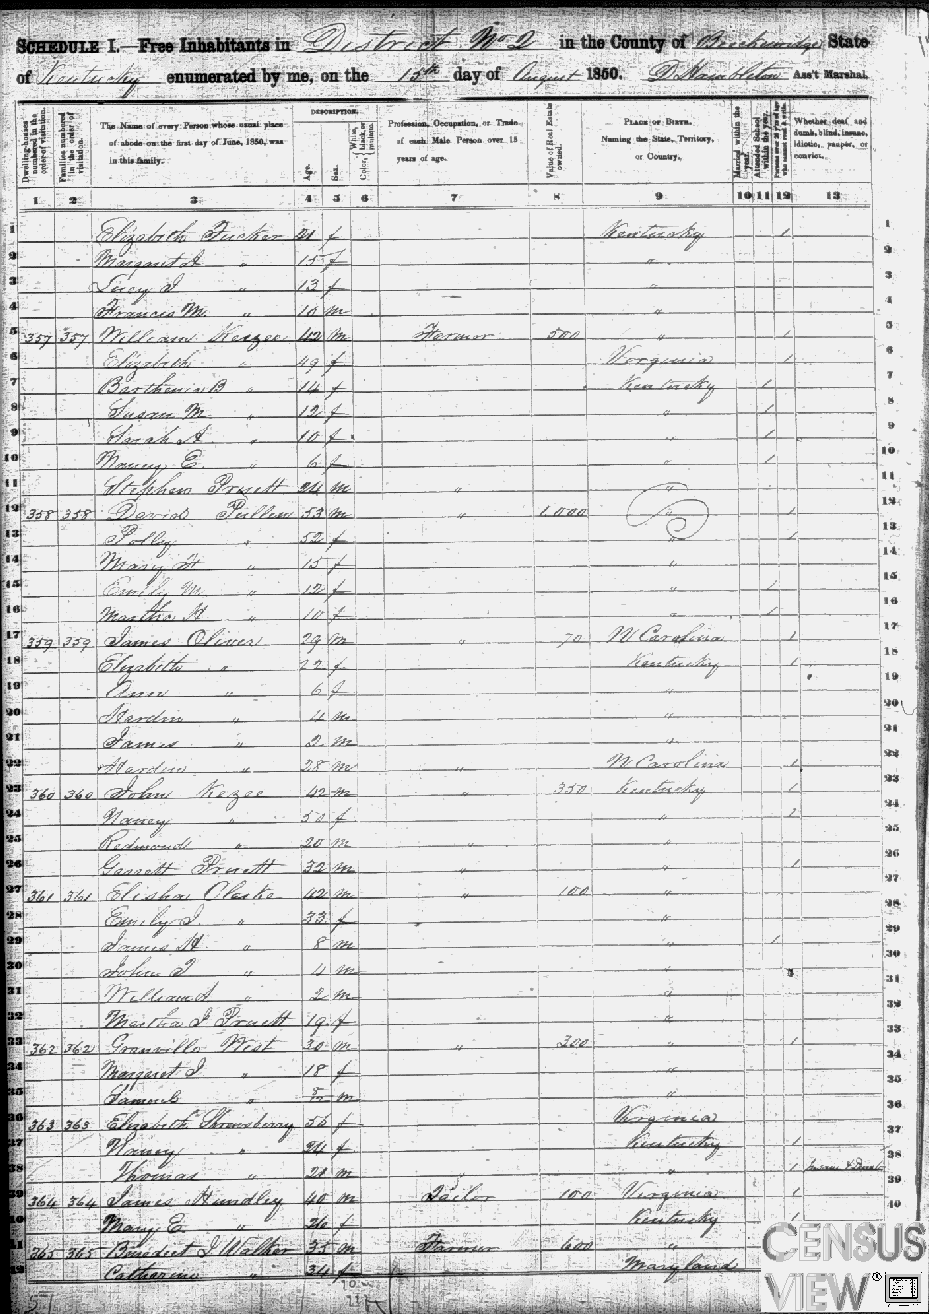 SCHEDULE I.—Free Inhabitants in District No 2 in the County of Breckenridge State
of Kentucky enumerated by me, on the 15th day of August 1850. D. Hambleton Ass't Marshal.
Dwelling-houses numbered in the order of visitation.
Families numbered in the order of visitation.
The Name of every Person whose usual place of abode on the first day of June, 1850, was in this family.
DESCRIPTION.
Age.
Sex.
Color, White, black or mulatto.
Profession, Occupation, or Trade of each Male Person over 15 years of age.
Value of Real Estate owned.
PLACE OF BIRTH. Naming the State, Territory, or Country.
Married within the year.
Attended School within the year.
Whether deaf and dumb, blind, insane, idiotic, pauper, or convict.
1 2 3 4 5 6 7 8 9 10 11 12 13
1 Elizabeth Tucker 21 f Kentucky 1 1
2 Margaret A " 15 f " 2
3 Lucy J " 13 f " 3
4 Francis M. " 10 m " 4
5 357 357 William Keezee 42 m Farmer 500 " 1 5
6 Elizabeth " 49 f Virginia 1 6
7 Barthenia B " 14 f Kentucky 1 7
8 Susan M. " 12 f " 1 8
9 Sarah A " 10 f " 1 9
10 Nancy E. " 6 f " 1 10
11 Stephen Pruett 24 m " " 11
12 358 358 David Pullen 53 m " 1000 " 1 12
13 Polley " 52 f " 1 13
14 Mary H " 15 f " 14
15 Emily M. " 12 f " 1 15
16 Martha H " 10 f " 1 16
17 359 359 James Oliver 29 m " 70 N Carolina 1 17
18 Elizabeth " 22 f Kentucky 1 18
19 Ann " 6 f " 19
20 Hardin " 4 m " 20
21 James " 2 m " 21
22 Hardin " 28 m " N Carolina 1 22
23 360 360 John Kezee 42 m " 350 Kentucky 1 23
24 Nancy " 50 f " 1 24
25 Redmond " 20 m " " 25
26 Garrett Pruett 32 m " " 1 26
27 361 361 Elisha Clarke 42 m " 100 " 27
28 Emily J " 33 f " 28
29 James H " 8 m " 1 29
30 John T " 4 m " 30
31 William A " 2 m " 31
32 Martha J Pruett 19 f " 32
33 362 362 Granville West 30 m " 300 " 1 33
34 Margaret J " 18 f " 34
35 Samuel " m " 35
36 363 363 Elizabeth Shrewsberry 56 f Virginia 36
37 Nancy " 24 f Kentucky 1 37
38 Thomas " 28 m " 1 38
39 364 364 James Hundley 40 m Tailor 100 Virginia 1 39
40 Mary E " 26 f Kentucky 1 40
41 365 365 Benedict J Walker 35 m Farmer 600 "
42 Catharine " 34 f Maryland
CENSUS
VIEW®